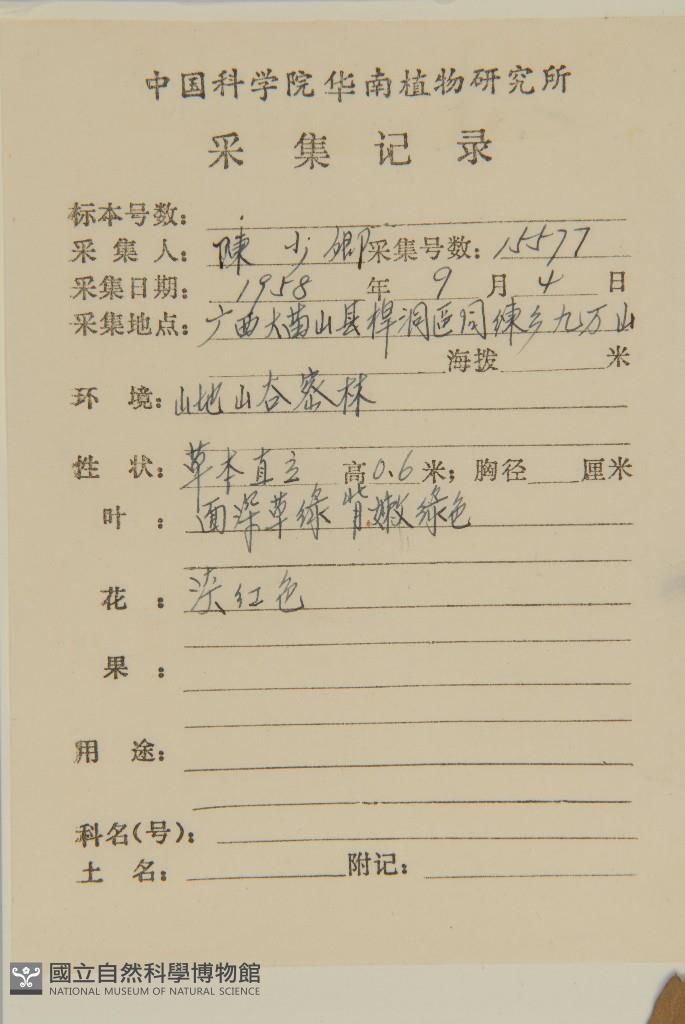 中国科学院华南植物研究所
采集记录
标本号数：
采集人：陳少卿采集号数：15577
采集日期：1958年9月4日
采集地点：广西大苗山县桿洞區同練乡九万山
海拨 米
环境：山地山谷密林
性状：草本直立 高0.6米；胸径 厘米
叶：面深草綠背嫩綠色
花：淡红色
果：
用途：
科名(号)：
土名： 附记：
國立自然科學博物館
NATIONAL MUSEUM OF NATURAL SCIENCE